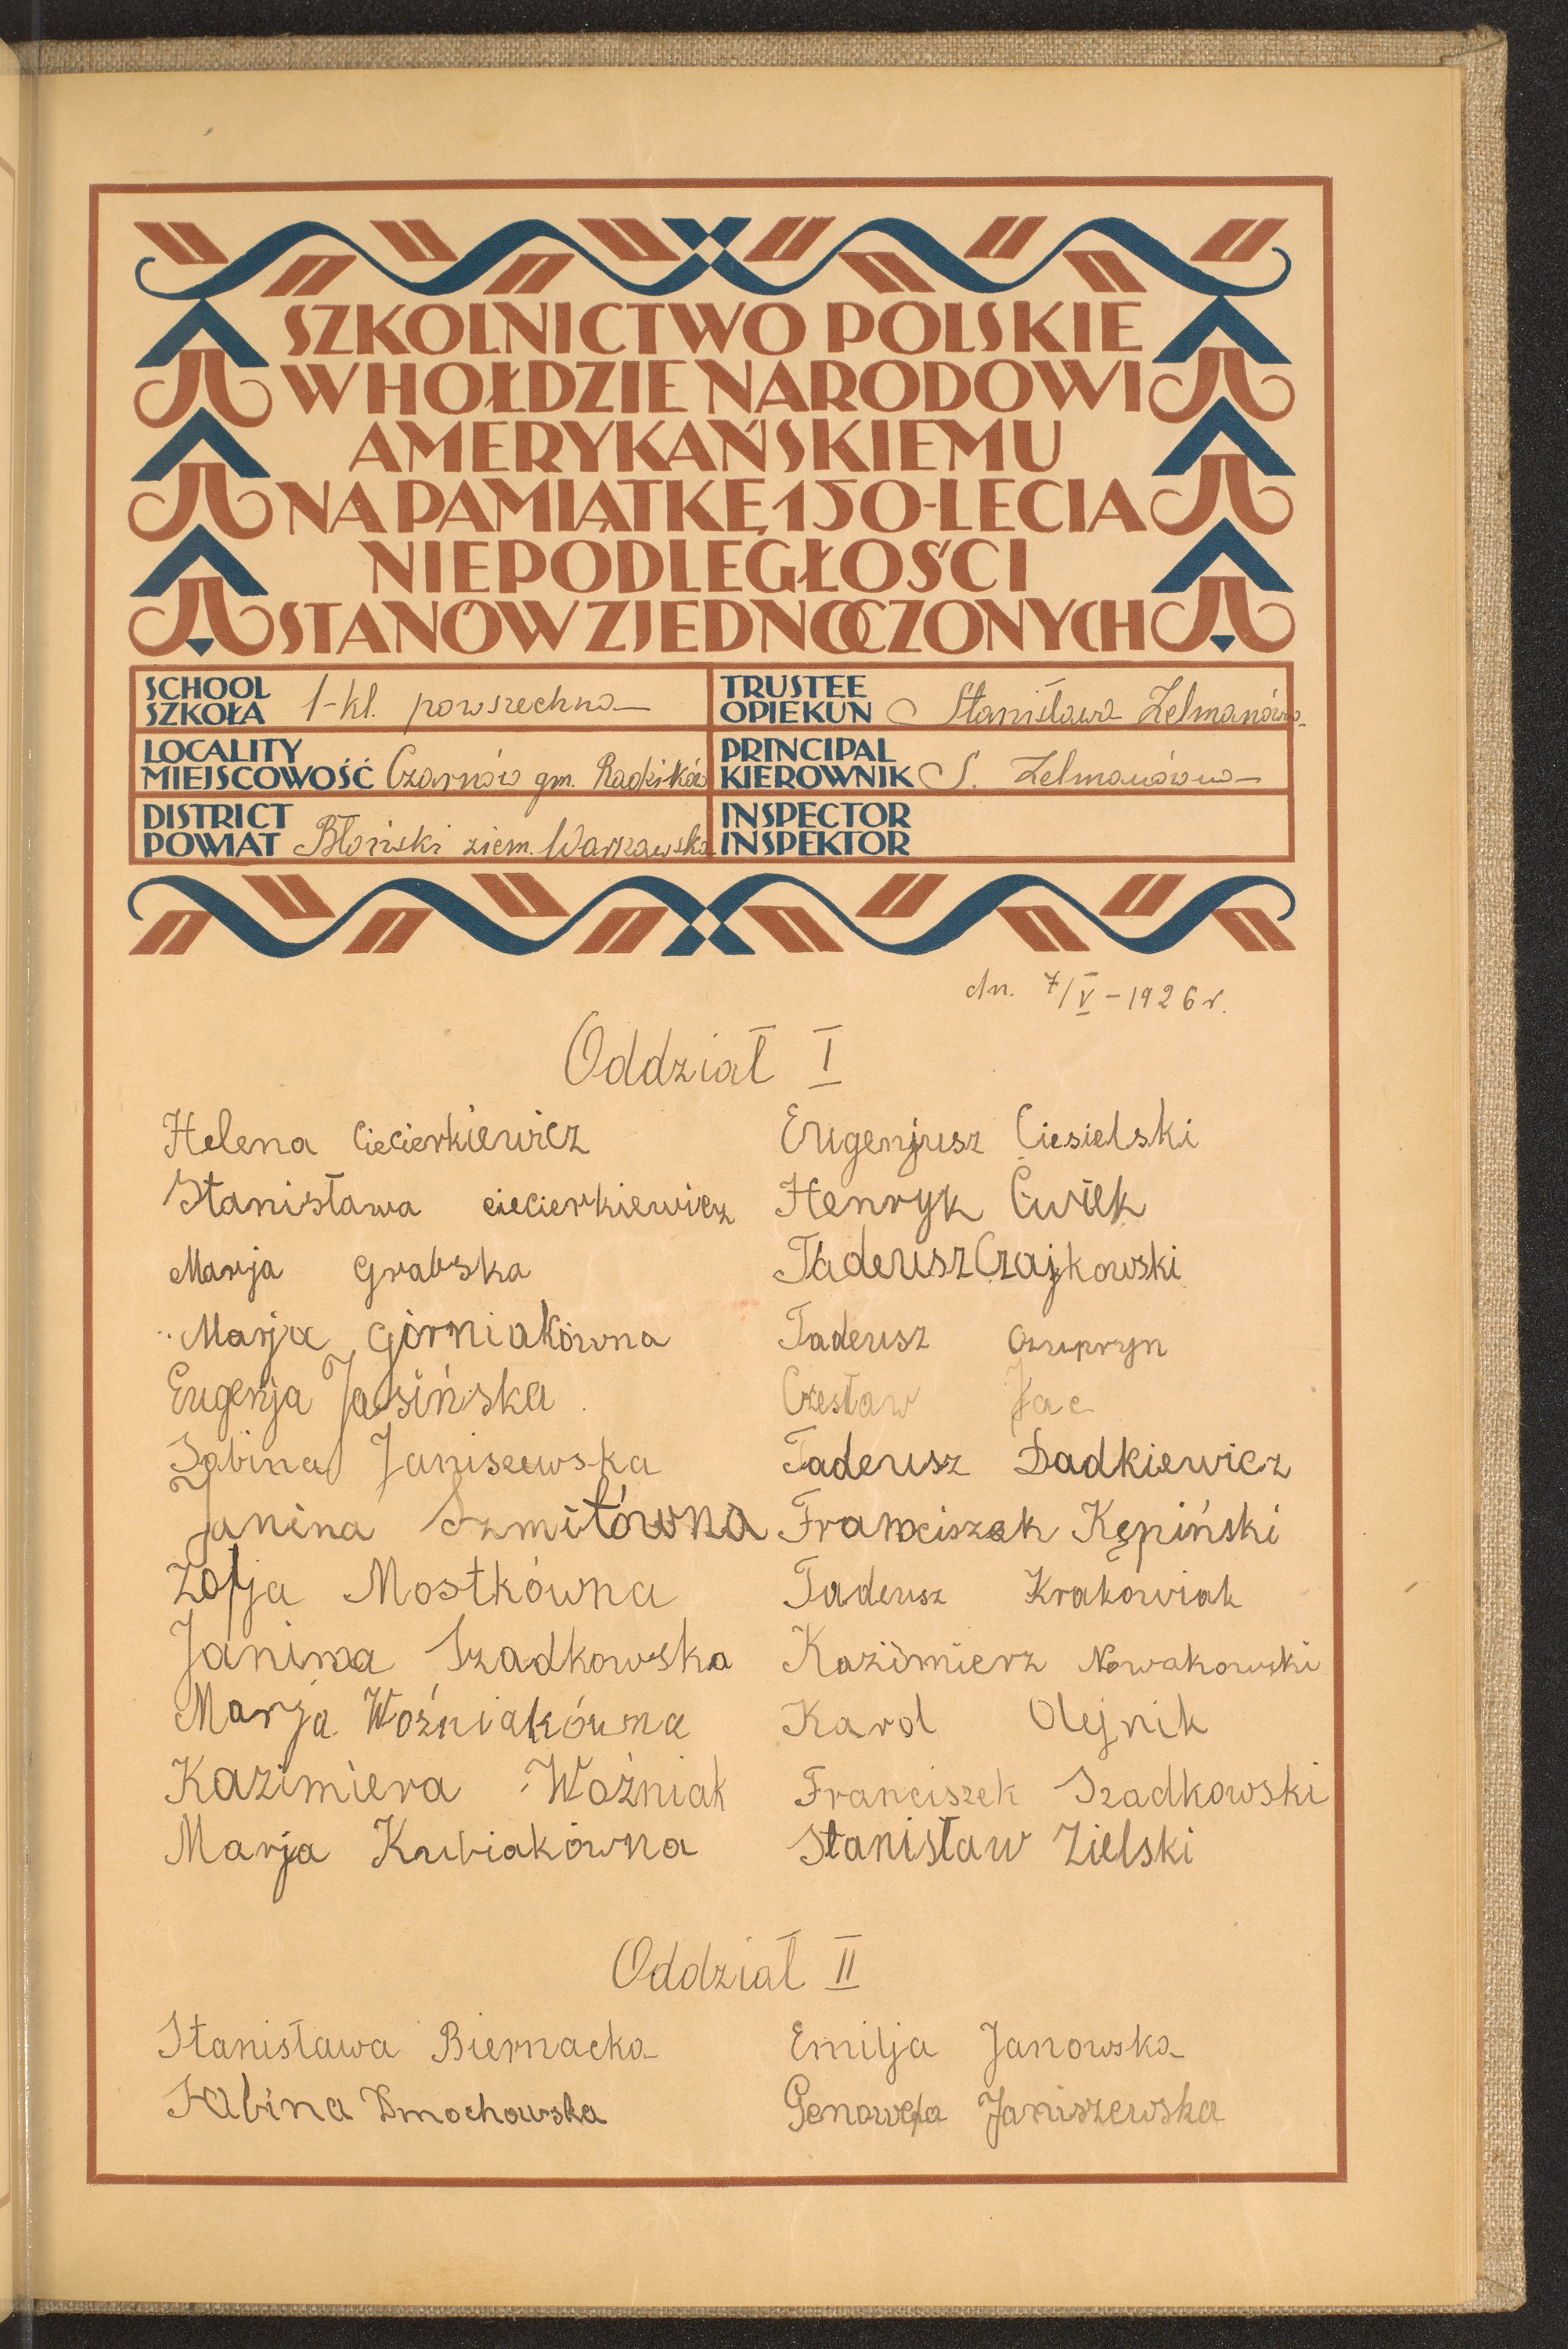 SZKOLNICTWO POLSKIE
W HOŁDZIE NARODOWI
AMERYKAŃSKIEMU
NA PAMIĄTKĘ 150-LECIA
NIEPODLEGŁOŚCI
STANÓW ZJEDNOCZONYCH
SCHOOL
SZKOŁA 1-kl. powszechna
TRUSTEE
OPIEKUN Stanisława Zelmanówna
LOCALITY
MIEJSCOWOŚĆ Czarnów gm. Radzików
PRINCIPAL
KIEROWNIK S. Zelmanówna
DISTRICT
POWIAT Błoński ziem. Warszawska
INSPECTOR
INSPEKTOR
dn. 7/V-1926 r.
Oddział I
Helena Ciecierkiewicz
Eugenjusz Ciesielski
Stanisława ciecierkiewicz
Henryk Ćwiek
Marja Grabska
Tadeusz Czajkowski
Marja Górniakówna
Tadeusz Czupryn
Eugenja Jasińska
Czesław Jac
Sabina Janiszewska
Tadeusz Dadkiewicz
Janina Szmitówna
Franciszek Kępiński
Zofja Mostkówna
Tadeusz Krakowiak
Janina Szadkowska
Kazimierz Nowakowski
Marja Woźniakówna
Karol Olejnik
Kazimiera Woźniak
Franciszek Szadkowski
Marja Kubiakówna
Stanisław Zielski
Oddział II
Stanisława Biernacka
Emilja Janowska
Sabina Dmochowska
Genowefa Janiszewska